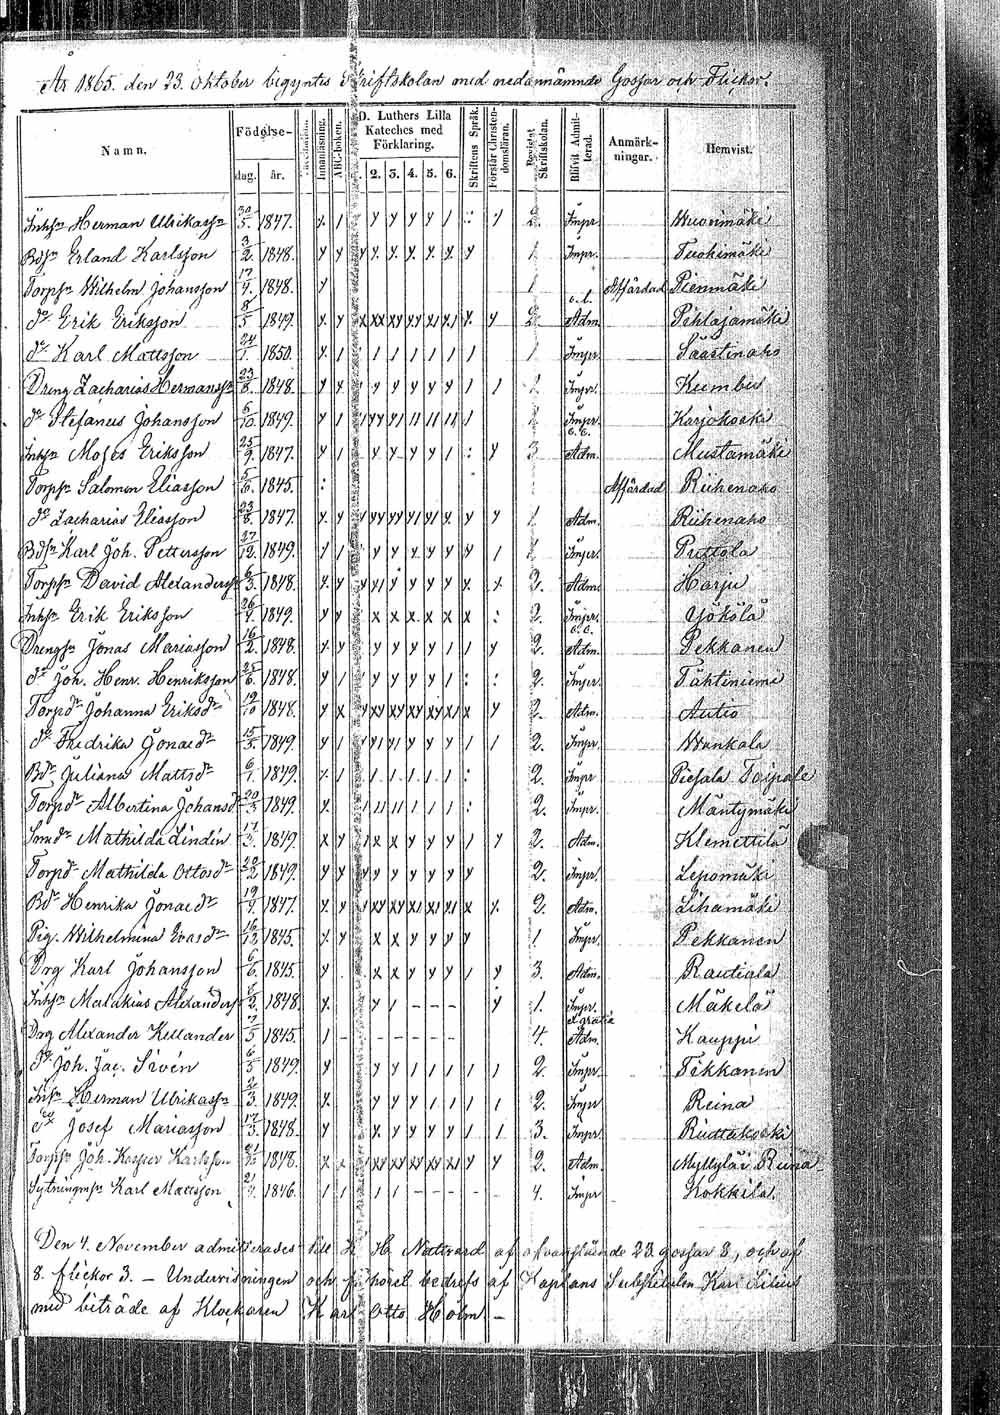 År 1865. den 23. Oktober begyntes Skriftskolan med nedannämnde Gossar och Flickor.
Namn. Födelse- dag. år. Innanläsning. ABC-boken. D. Luthers Lilla Kateches med Förklaring. 2. 3. 4. 5. 6. Skriftens Språk. Förstår Christendomsläran. Bevistat Skriftskolan. Blifvit Admitterad. Anmärkningar. Hemvist.
Inhsn Herman Ulrikassn 30/5 1847. 2. Impr Wuorimäki
Bdsn Erland Karlsson 3/2 1848. 1 Impr. Tuokimäki
Torpsn Wilhelm Johansson 17/4 1848. 1 Affärdad Pienmäki
do Erik Eriksson 8/5 1849. 2. Adm. Pihlajamäki
do Karl Mattsson 24/1 1850. 1 Impr. Säästinaho
Dreng Zacharias Hermanssn 23/8 1848. Impr. Kumbu
do Stefanus Johansson 6/10 1849. Impr. Karjokoski
Inhsn Moses Eriksson 25/9 1847. 3 Adm. Mustamäki
Torpsn Salomon Eliasson 5/6 1845. Affärdad Riihenaho
do Zacharias Eliasson 23/8 1847. 1 Adm. Riihenaho
Bdsn Karl Joh. Pettersson 27/12 1849. Impr. Puttola
Torpsn David Alexanderssn 6/3 1848. 2. Adm. Harju
Inhsn Erik Eriksson 26/4 1849. 2. Impr. Yökölä
Drengsn Jonas Mariasson 16/2 1848. 2. Adm. Pekkanen
do Joh. Henr. Henriksson 25/6 1848. 2. Impr. Tähtiniemi
Torpdr Johanna Eriksdr 19/10 1848. 2. Adm. Autio
do Fredrika Jonaedr 15/3 1849. 2. Impr. Wankala
Bdr Juliana Mattsdr 6/1 1849. 2. Impr Piesala Toipale
Torpdr Albertina Johansdr 20/3 1849. 2. Impr. Mäntymäki
Smedr Mathilda Lindén 17/3 1849. 2. Adm. Klemettilä
Torpdr Mathilda Ottosdr 20/2 1849. 2. Impr. Lepomäki
Bdr Henrika Jonaedr 19/9 1847. 2. Adm. Lihamäki
Pig. Wilhelmina Evasdr 16/12 1845. 1 Impr. Pekkanen
Drg Karl Johansson 6/6 1845. 3. Adm. Rautiala
Inhsn Malakias Alexanderss 1848. 1. Impr. Mäkelä
Drg Alexander Kellander 7/5 1845. 4. ex gratia Adm. Kauppi
do Joh. Jac. Sivén 6/5 1849. 2. Impr. Tikkanen
Inhsn Herman Ulrikassn 2/3 1849. 2. Impr Reina
do Josef Mariasson 17/3 1848. 3. Impr. Rudtakoski
Torpsn Joh. Kasper Karlsson 21/10 1848. 2. Adm. Myllyläi Reina
Sytningmsn Karl Mattsson 21/4 1846. 4. Impr Kokkila
Den 4. November admitterades till H. H. Nattvard af ofvanstående 23 gossar 8, och af
8. flickor 3. – Undervisningen och förhöret bedrefs af Kaplans Substituten Karl Silius
med biträde af Klockaren Karl Otto Holm –